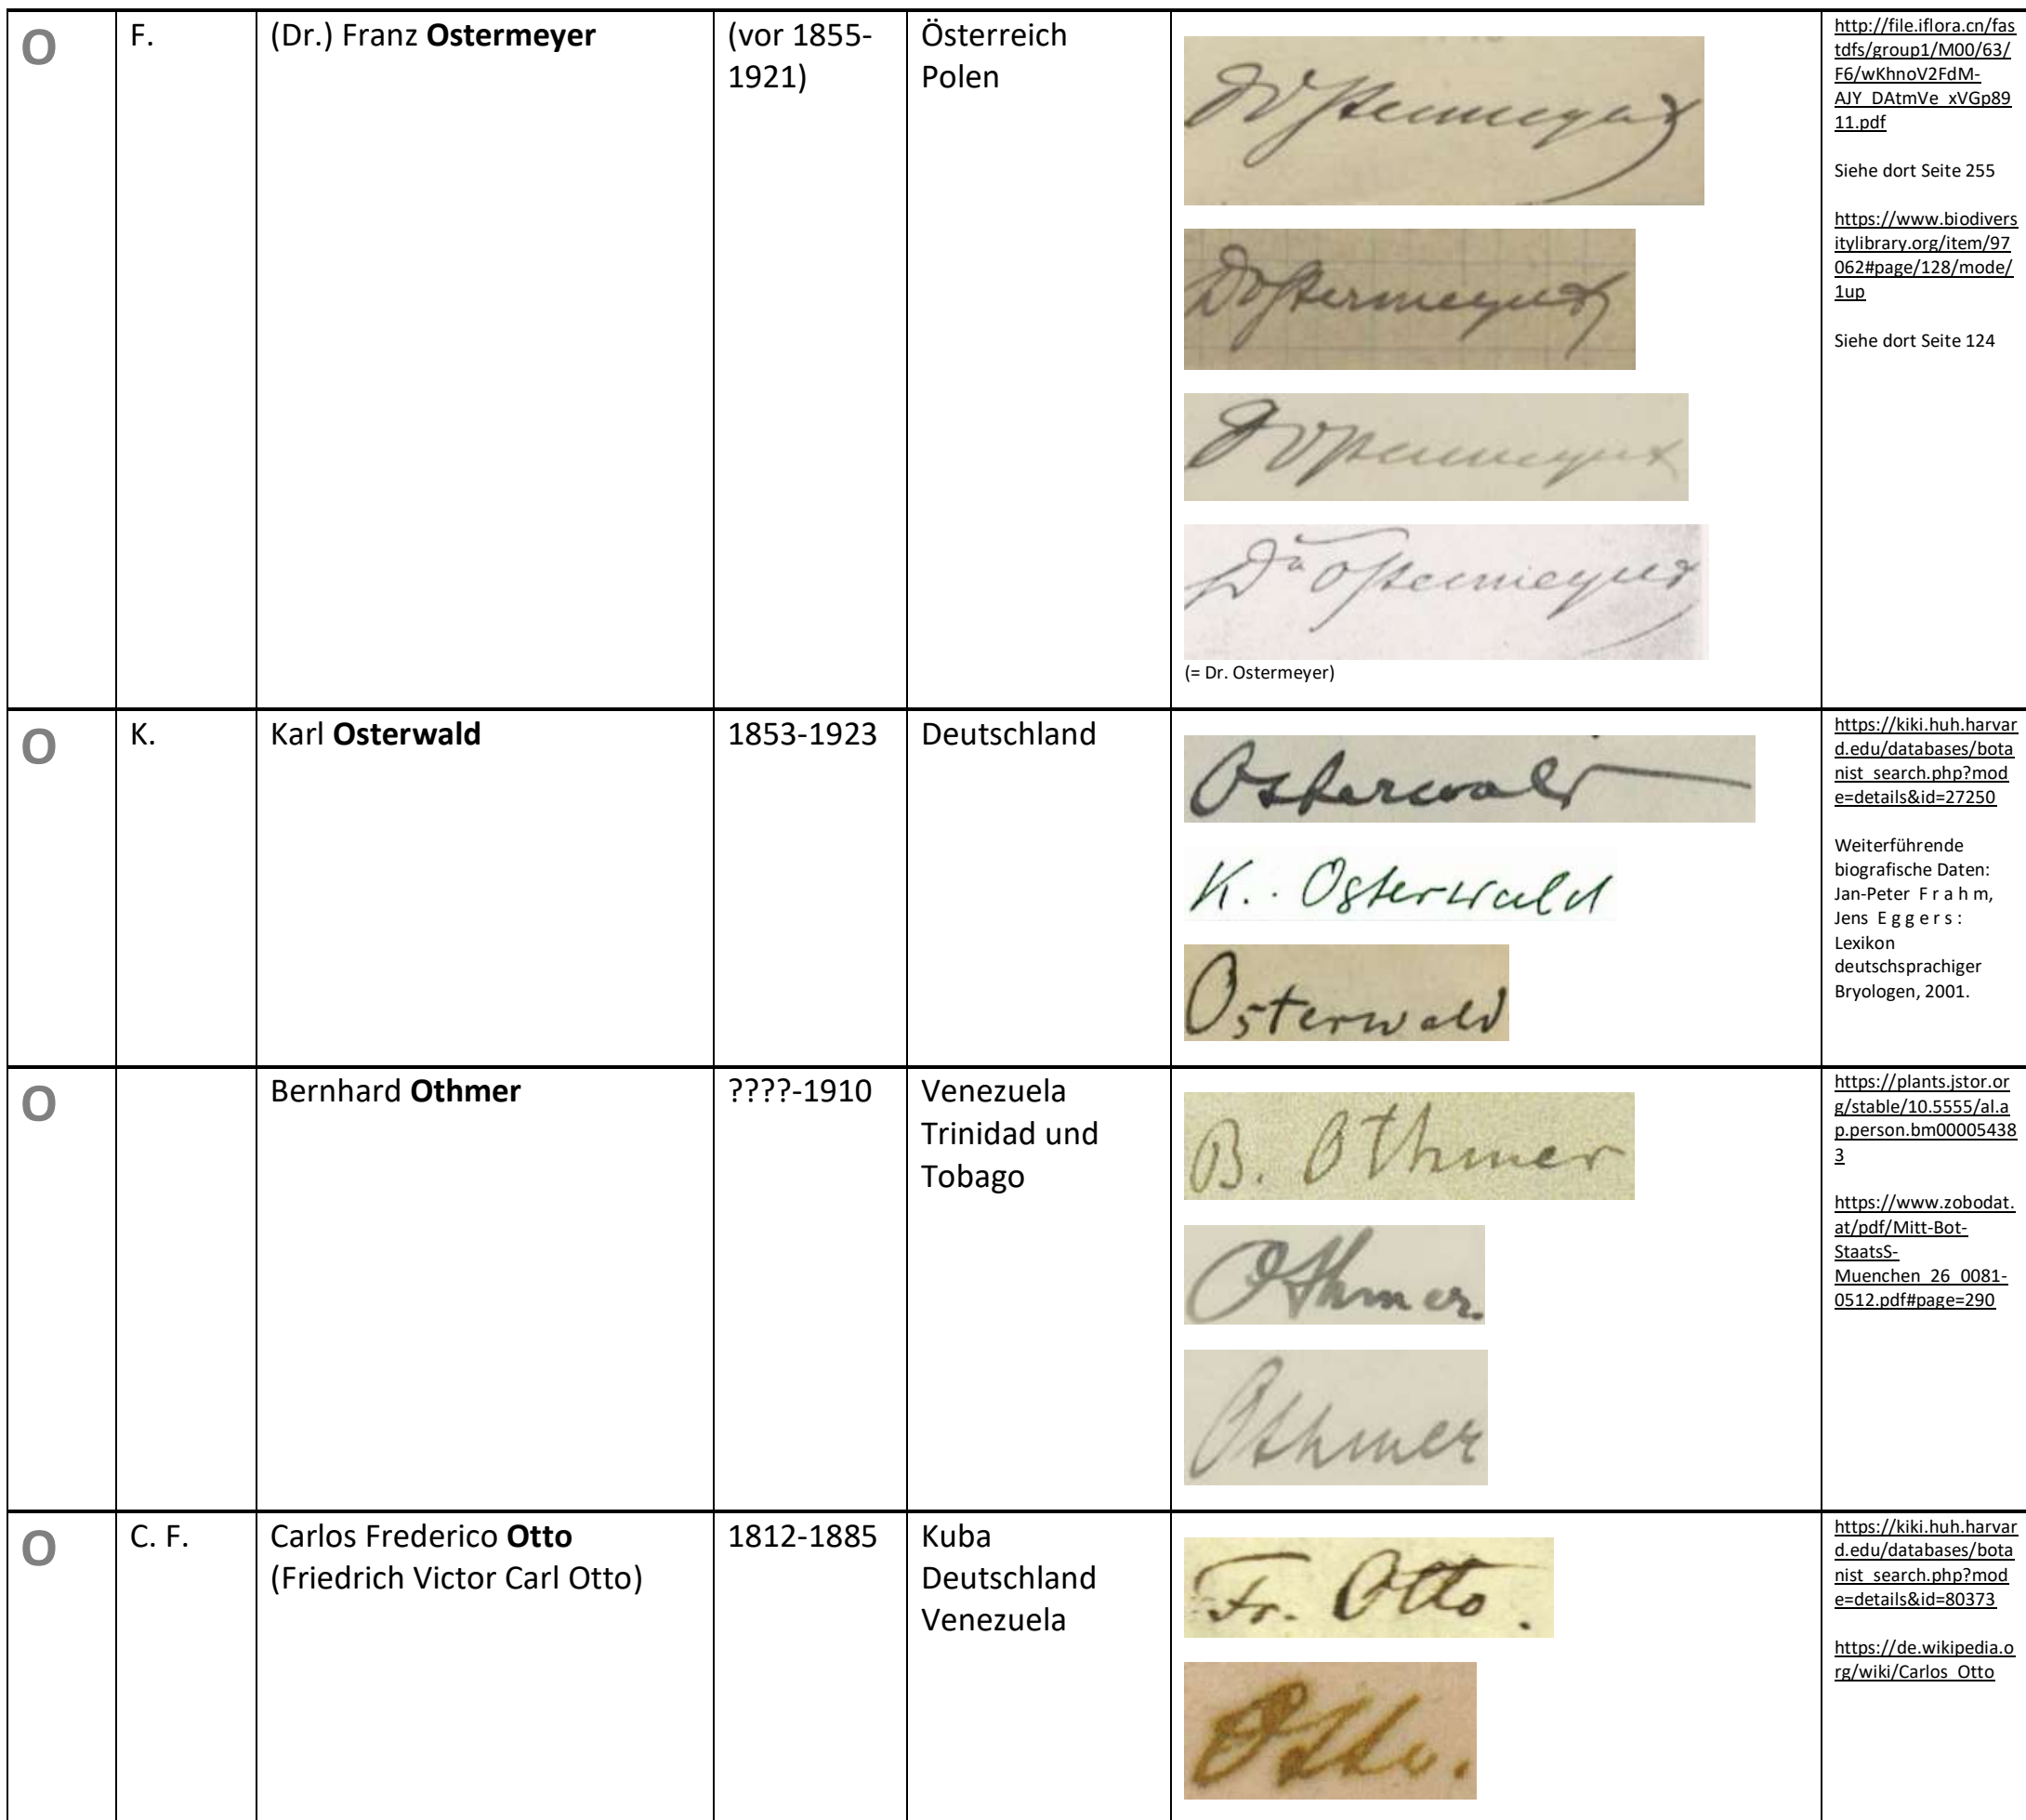 O
F.
(Dr.) Franz Ostermeyer
(vor 1855-
1921)
Österreich
Polen
Dr Ostermeyer
Dr Ostermeyer
Dr Ostermeyer
Dr Ostermeyer
(= Dr. Ostermeyer)
http://file.iflora.cn/fas
tdfs/group1/M00/63/
F6/wKhnoV2FdM-
AJY_DAtmVe_xVGp89
11.pdf
Siehe dort Seite 255
https://www.biodivers
itylibrary.org/item/97
062#page/128/mode/
1up
Siehe dort Seite 124
O
K.
Karl Osterwald
1853-1923
Deutschland
Osterwald
K. Osterwald
Osterwald
https://kiki.huh.harvar
d.edu/databases/bota
nist_search.php?mod
e=details&id=27250
Weiterführende
biografische Daten:
Jan-Peter F r a h m,
Jens E g g e r s :
Lexikon
deutschsprachiger
Bryologen, 2001.
O
Bernhard Othmer
????-1910
Venezuela
Trinidad und
Tobago
B. Othmer
Othmer.
Othmer
https://plants.jstor.or
g/stable/10.5555/al.a
p.person.bm00005438
3
https://www.zobodat.
at/pdf/Mitt-Bot-
StaatsS-
Muenchen_26_0081-
0512.pdf#page=290
O
C. F.
Carlos Frederico Otto
(Friedrich Victor Carl Otto)
1812-1885
Kuba
Deutschland
Venezuela
Fr. Otto.
Otto.
https://kiki.huh.harvar
d.edu/databases/bota
nist_search.php?mod
e=details&id=80373
https://de.wikipedia.o
rg/wiki/Carlos_Otto